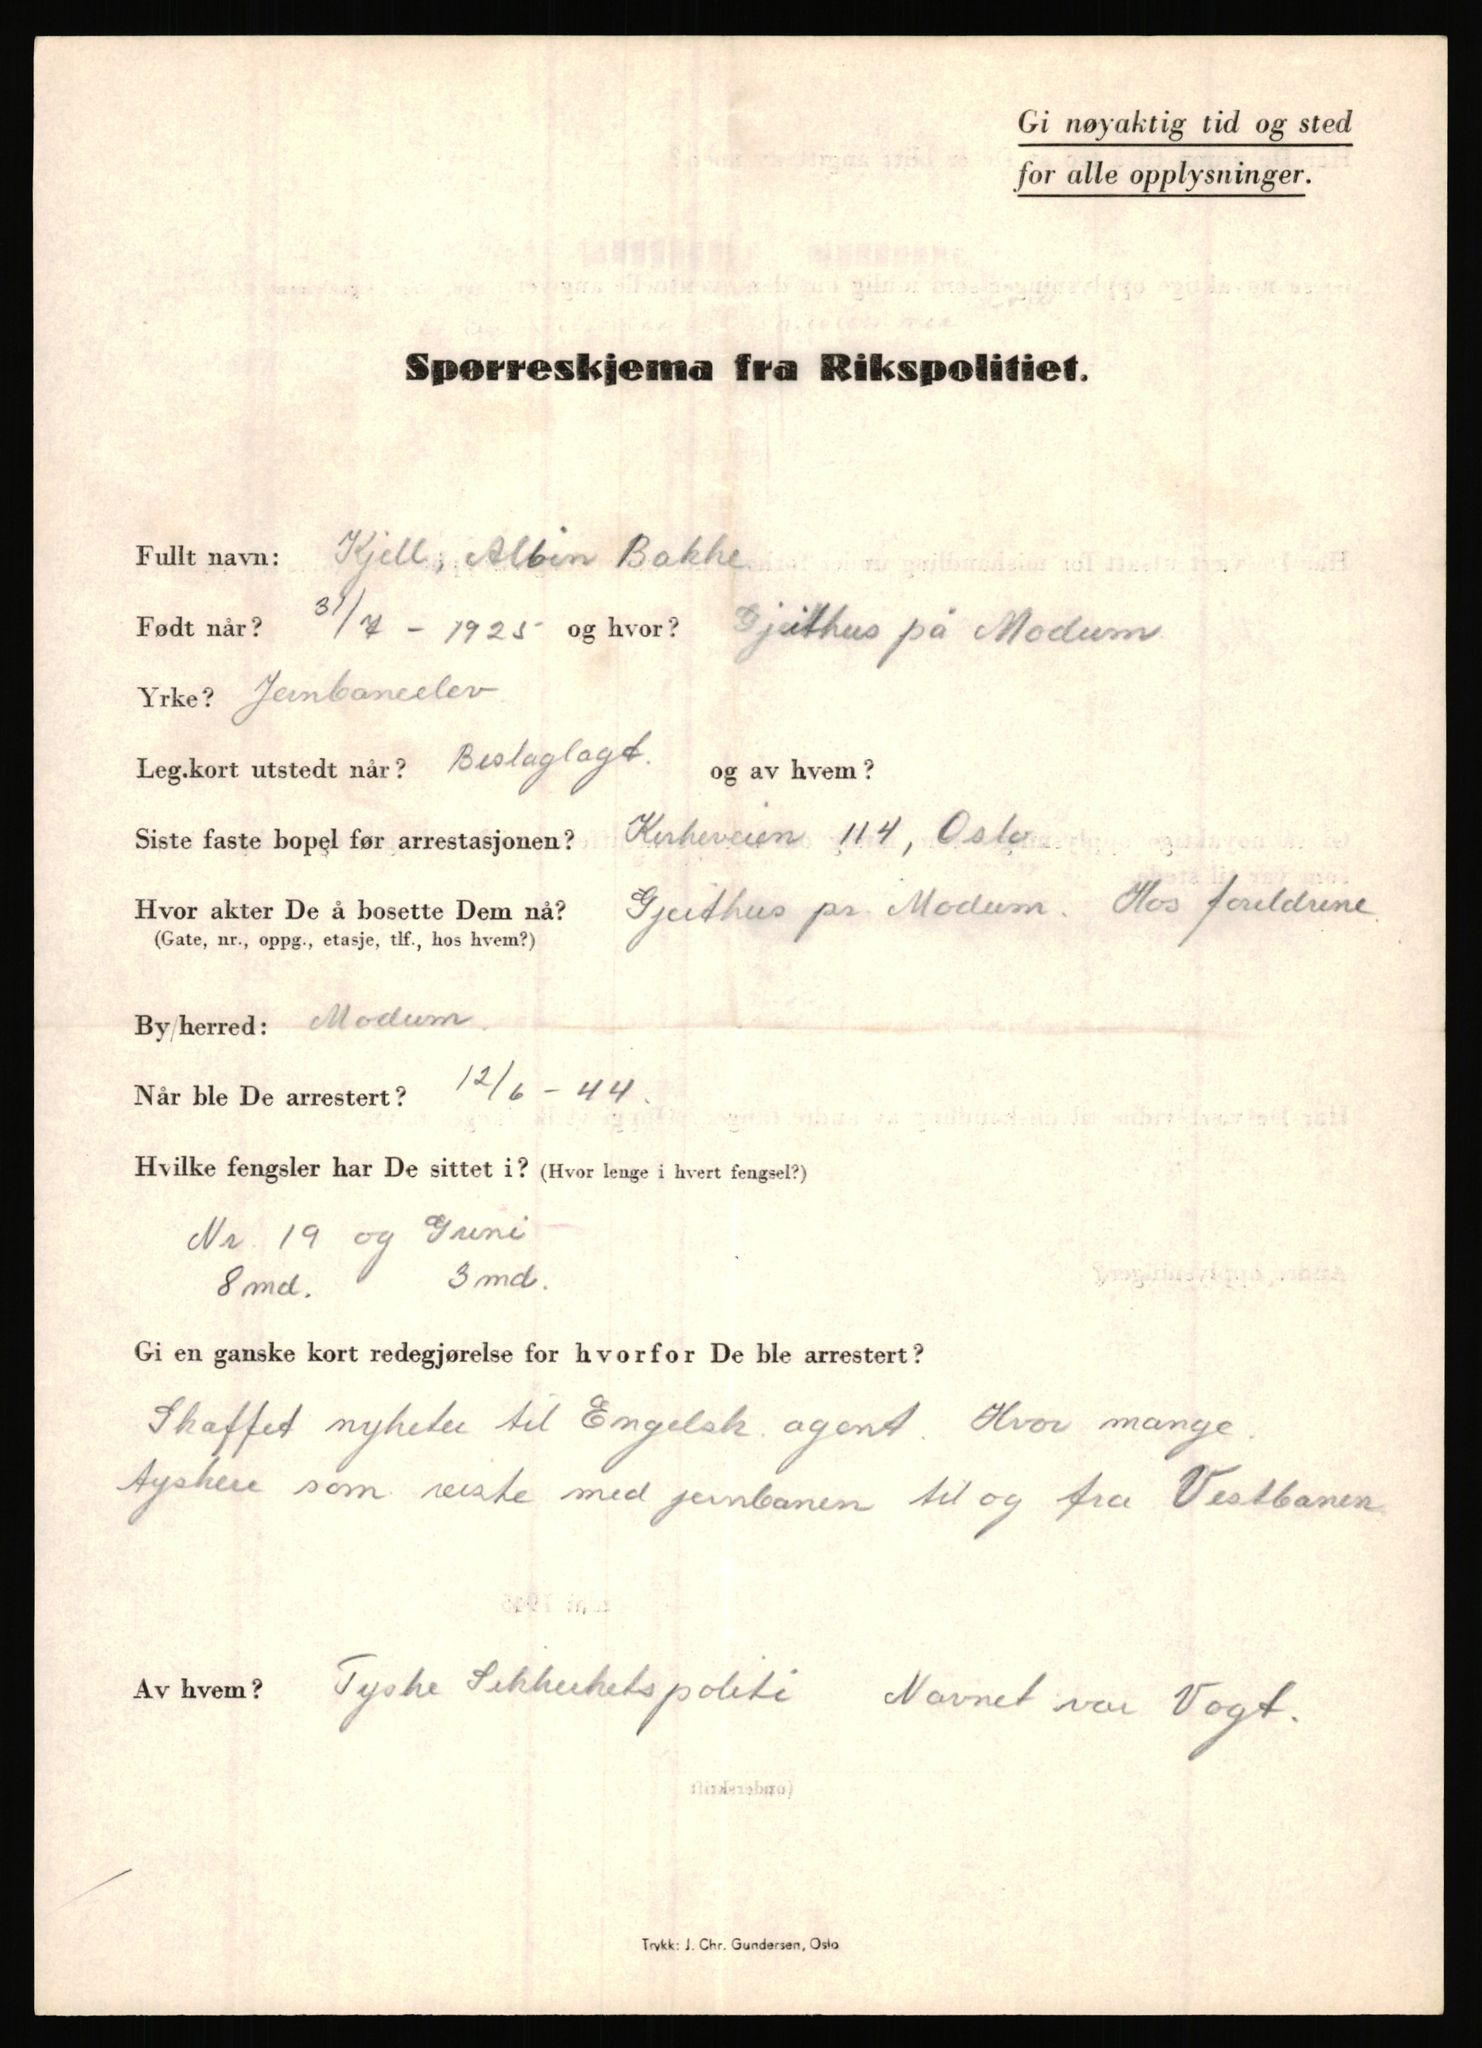 Gi nøyaktig tid og sted
for alle opplysninger.
Spørreskjema fra Rikspolitiet.
Fullt navn: Kjell, Albin Bakke
Født når? 31/7 - 1925 og hvor? Gjeithus på Modum
Yrke? Jernbaneelev
Leg.kort utstedt når? Beslaglagt. og av hvem?
Siste faste bopel før arrestasjonen? Kirkeveien 114, Oslo
Hvor akter De å bosette Dem nå? Gjeithus pr. Modum. Hos foreldrene
(Gate, nr., oppg., etasje, tlf., hos hvem?)
By/herred: Modum.
Når ble De arrestert? 12/6 - 44.
Hvilke fengsler har De sittet i? (Hvor lenge i hvert fengsel?)
Nr. 19 og Grini
8 md. 3 md.
Gi en ganske kort redegjørelse for hvorfor De ble arrestert?
Skaffet nyheter til Engelsk agent. Hvor mange
tyskere som reiste med jernbanen til og fra Vestbanen
Av hvem? Tyske Sikkerhetspoliti Navnet var Vogt.
Trykk: J. Chr. Gundersen, Oslo